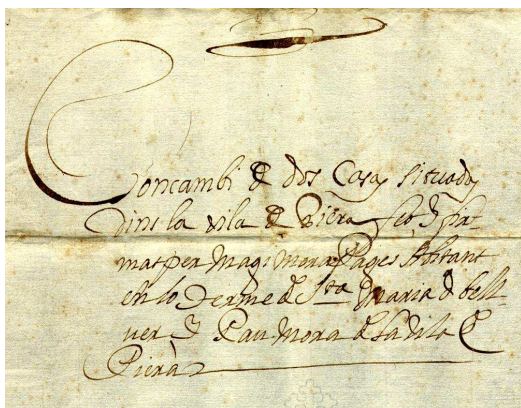 Concambi de dos Casas situadas
dins la vila de Piera fet y fir
mat per Magi Mora Pages habitant
en lo Terme de Sta Maria de bell
ver y Pau Mora de la vila de
Piera